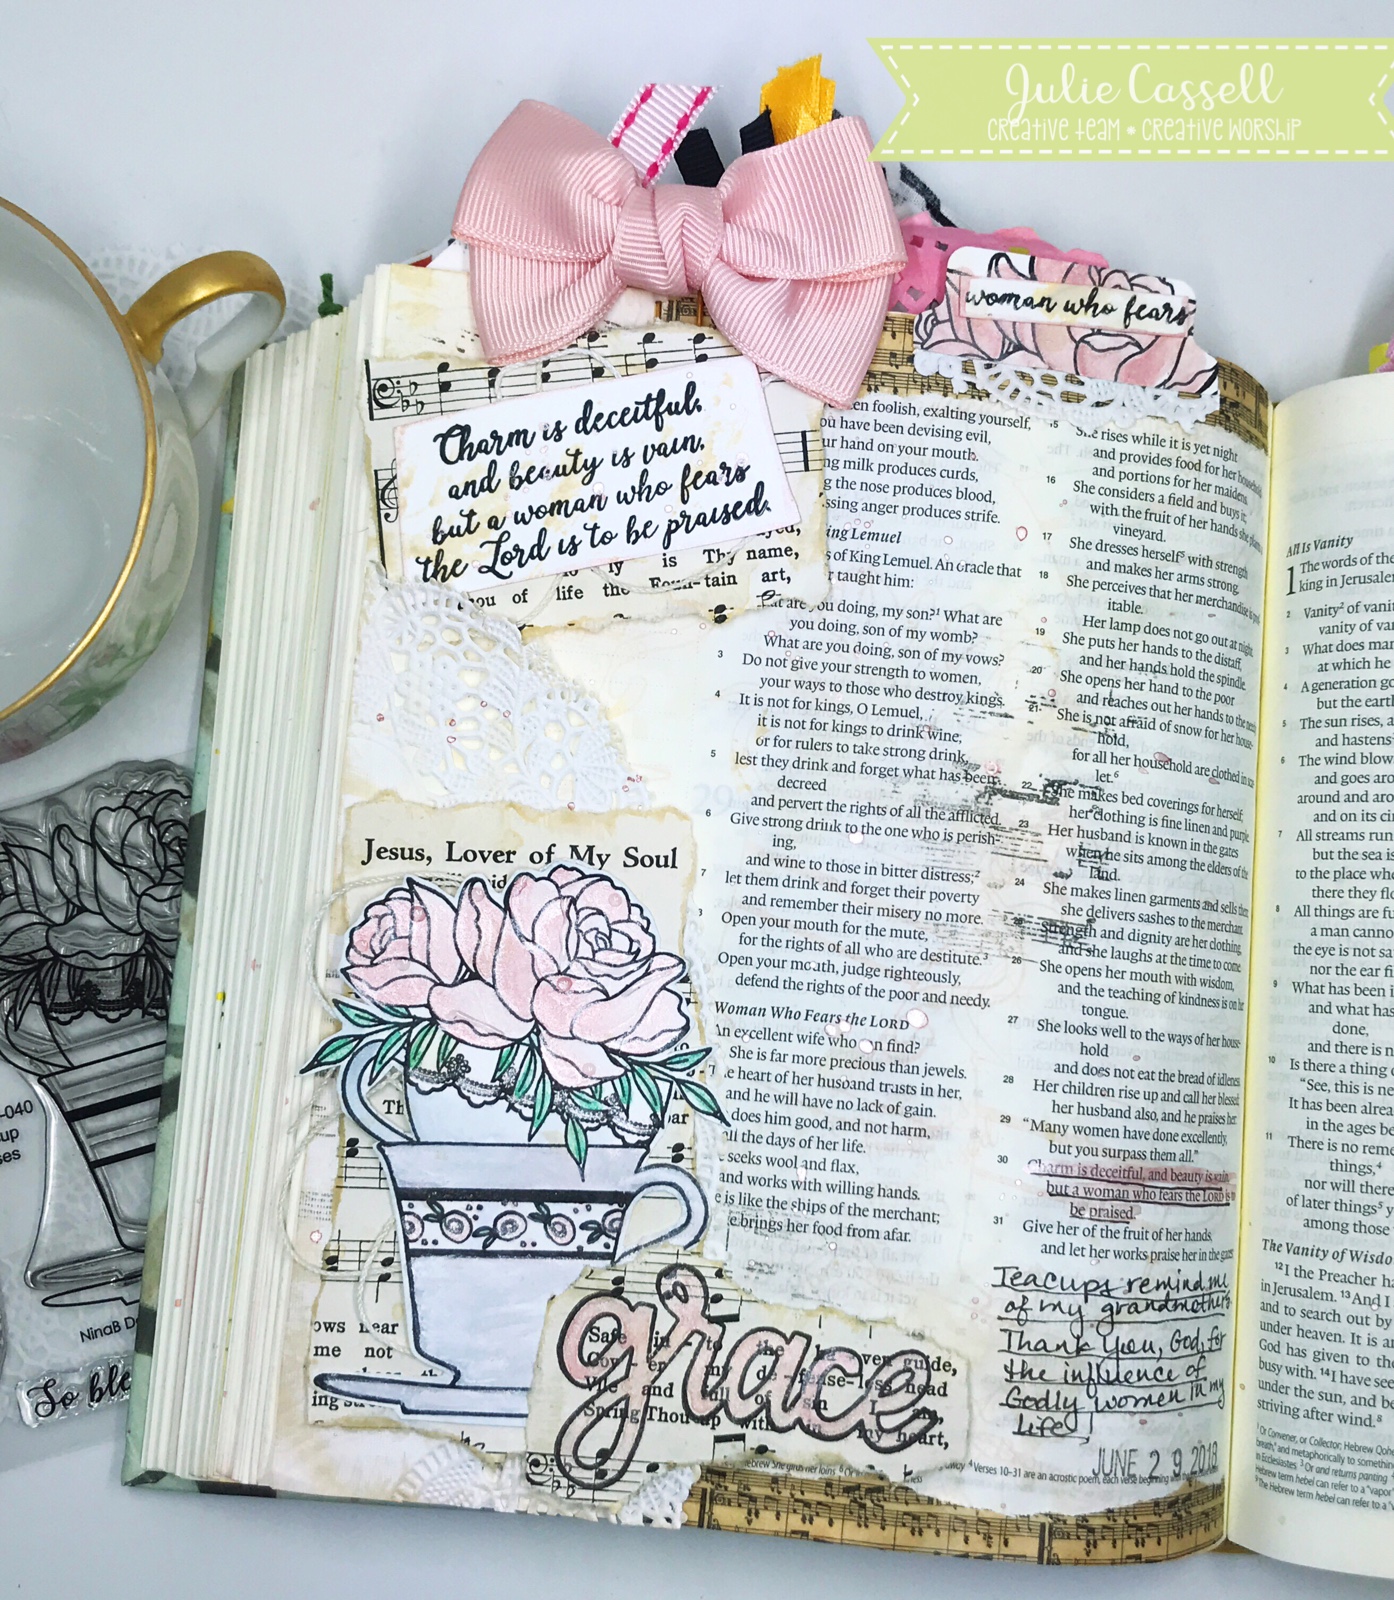 Julie Cassell
creative team • creative worship
woman who fears
Charm is deceitful,
and beauty is vain,
but a woman who fears
the Lord is to be praised.
ly is Thy name,
of life the Foun-tain art,
Jesus, Lover of My Soul
ows near
me not
grace
Safe in - to the ven guide,
and
Spring Thou up with in my heart,
-040
NinaB
So ble
en foolish, exalting yourself,
have been devising evil,
hand on your mouth.
milk produces curds,
the nose produces blood,
anger produces strife.
ing Lemuel
of King Lemuel. An oracle that
taught him:
are you doing, my son?¹ What are
you doing, son of my womb?
What are you doing, son of my vows?
3 Do not give your strength to women,
your ways to those who destroy kings.
4 It is not for kings, O Lemuel,
it is not for kings to drink wine,
or for rulers to take strong drink,
5 lest they drink and forget what has been
decreed
and pervert the rights of all the afflicted.
6 Give strong drink to the one who is perish-
ing,
and wine to those in bitter distress;²
7 let them drink and forget their poverty
and remember their misery no more.
Open your mouth for the mute,
for the rights of all who are destitute.³
Open your mouth, judge righteously,
defend the rights of the poor and needy.
Woman Who Fears the LORD
An excellent wife who can find?
She is far more precious than jewels.
heart of her husband trusts in her,
and he will have no lack of gain.
does him good, and not harm,
all the days of her life.
seeks wool and flax,
and works with willing hands.
is like the ships of the merchant;
brings her food from afar.
15 She rises while it is yet night
and provides food for her household
and portions for her maidens.
16 She considers a field and buys it;
with the fruit of her hands she plants
vineyard.
17 She dresses herself⁵ with strength
and makes her arms strong.
18 She perceives that her merchandise is prof
itable.
Her lamp does not go out at night.
19 She puts her hands to the distaff,
and her hands hold the spindle.
20 She opens her hand to the poor
and reaches out her hands to the needy
21 She is not afraid of snow for her house-
hold,
for all her household are clothed in
let.⁶
22 She makes bed coverings for herself;
her clothing is fine linen and purple.
23 Her husband is known in the gates
when he sits among the elders of the
land.
24 She makes linen garments and sells them;
she delivers sashes to the merchant
Strength and dignity are her clothing,
and she laughs at the time to come
26 She opens her mouth with wisdom,
and the teaching of kindness is on her
tongue.
27 She looks well to the ways of her house-
hold
and does not eat the bread of idlenes
28 Her children rise up and call her blessed
her husband also, and he praises her:
29 "Many women have done excellently,
but you surpass them all."
30 Charm is deceitful, and beauty is vain,
but a woman who fears the LORD is to
be praised.
31 Give her of the fruit of her hands,
and let her works praise her in the gates
Teacups remind me
of my grandmothers
Thank You, God, for
the influence of
Godly women in my
life!
JUNE 29 2018
⁴ Verses 10–31 are an acrostic poem, each verse beginning
All Is Vanity
1 The words of the
king in Jerusalem
2 Vanity² of vanit
vanity of va
3 What does man
at which he
4 A generation go
but the earth
5 The sun rises, a
and hastens
6 The wind blow
and goes aro
around and aro
and on its cir
7 All streams run
but the sea is
to the place whe
there they flo
8 All things are fu
a man canno
the eye is not sa
nor the ear fi
9 What has been i
and what has
done,
and there is n
10 Is there a thing o
"See, this is ne
It has been alrea
in the ages be
11 There is no reme
things,⁴
nor will there
of later things⁵ y
among those
The Vanity of Wisdo
12 I the Preacher ha
in Jerusalem. 13 And I
and to search out by
under heaven. It is an
God has given to the
busy with. 14 I have see
under the sun, and be
striving after wind.⁸